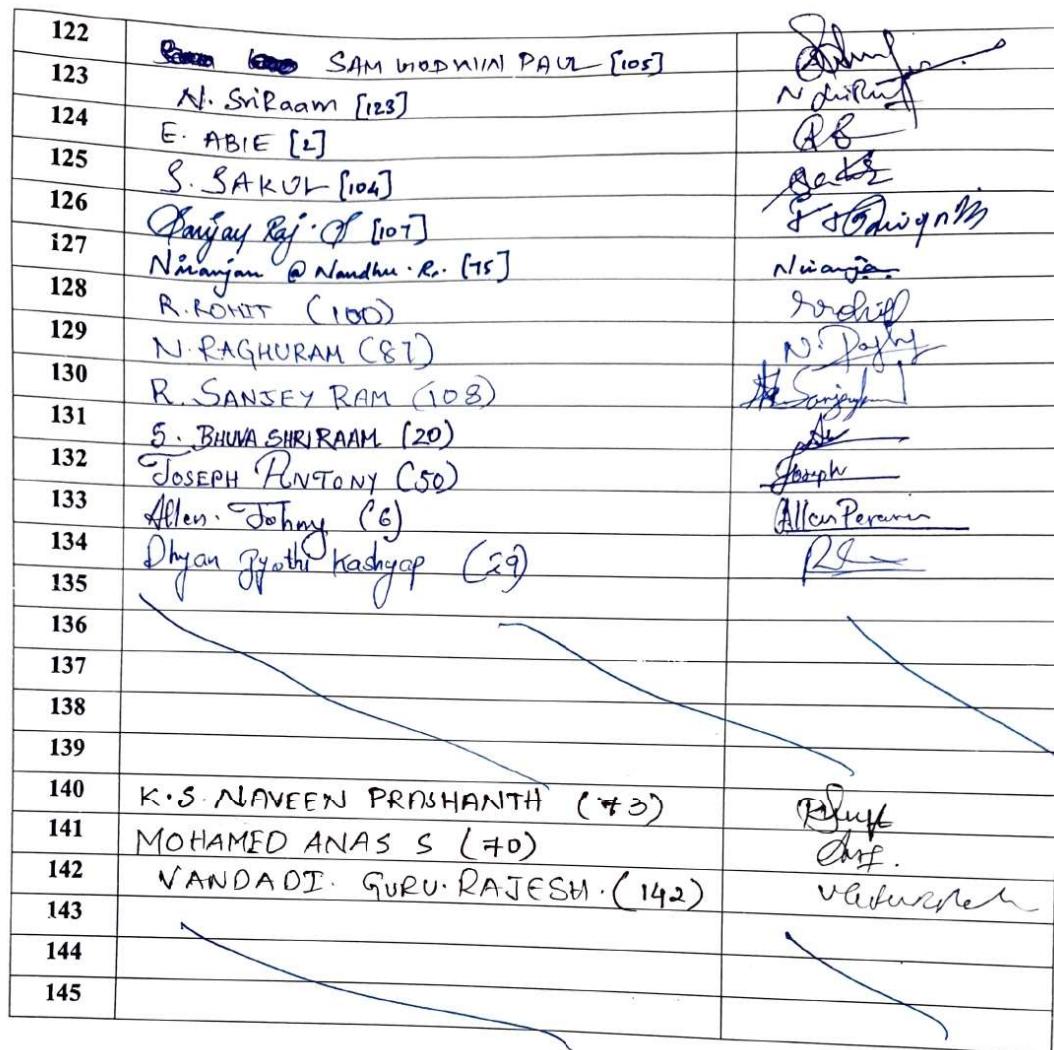 122 SAM GODWIN PAUL [105]
123 N. SriRaam [123]
124 E. ABIE [2]
125 S. SAKUL [104]
126 Sanjay Raj. [107]
127 Niranjan @ Nandhu. R. [75] Niranja
128 R. ROHIT (100)
129 N. RAGHURAM (87)
130 R. SANJEY RAM (108)
131 S. BHUVA SHRI RAAM (20)
132 JOSEPH ANTONY (50) Joseph
133 Allen. Johny (6) Allen
134 Dhyan Jyothi Kashyap (29)
135
136
137
138
139
140 K.S. NAVEEN PRASHANTH (73)
141 MOHAMED ANAS S (70)
142 VANDADI. GURU. RAJESH. (142)
143
144
145